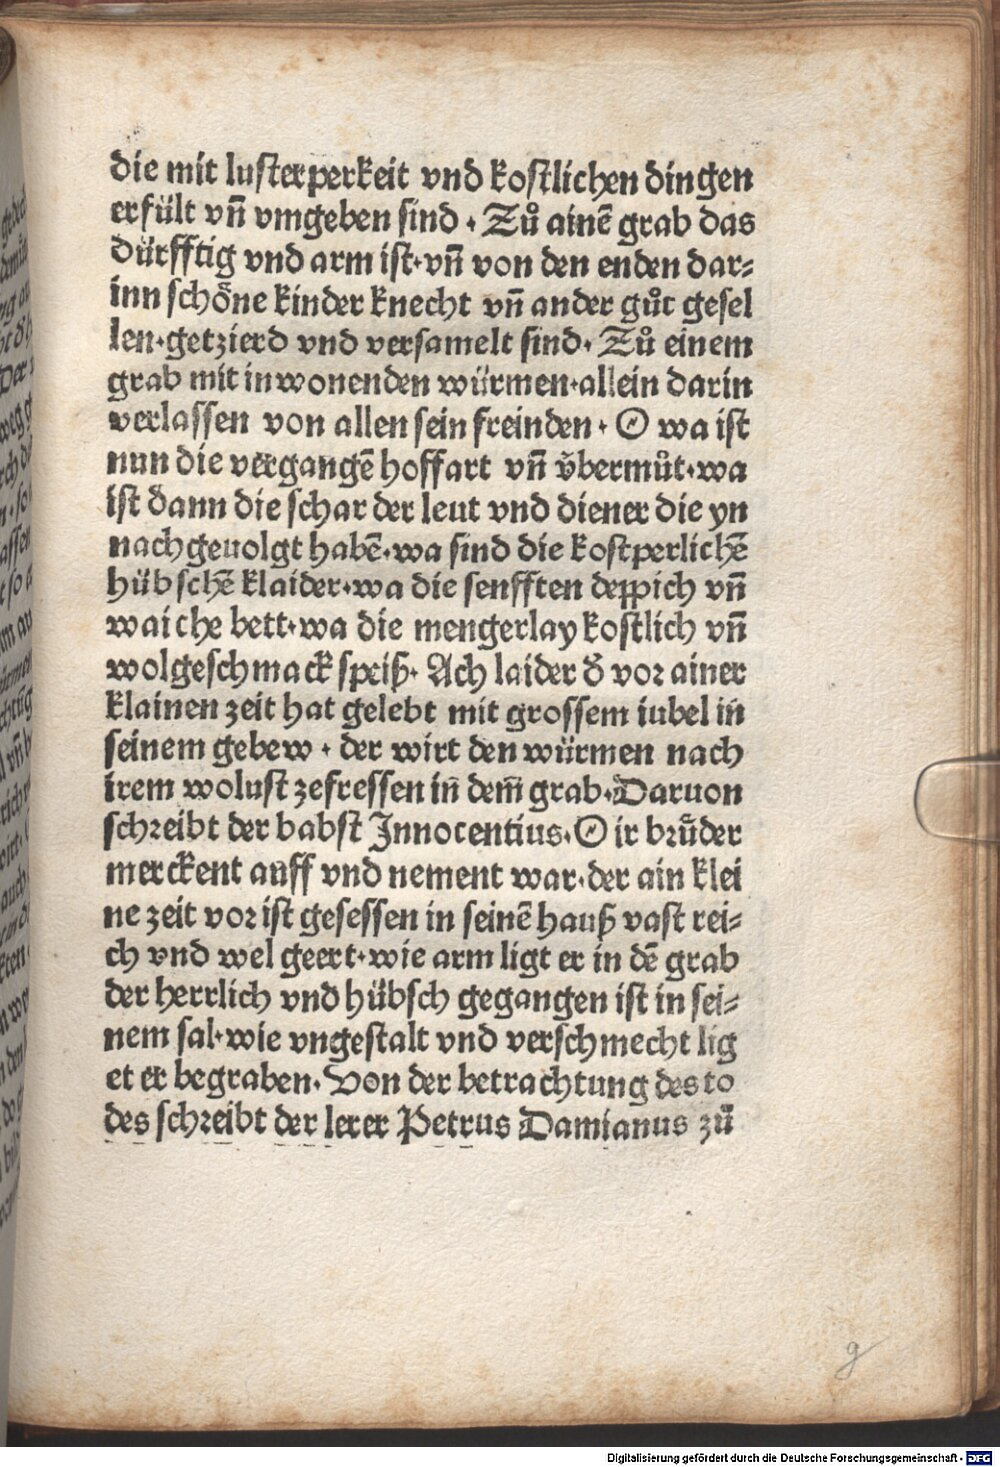 die mit lusterperkeit vnd kostlichen dingen
erfült vn̄ vmgeben sind · Zů ainē grab das
dürfftig vnd arm ist·vn̄ von den enden dar⸗
inn schöne kinder knecht vn̄ ander gůt gesel
len·getzierd vnd versamelt sind· Zů einem
grab mit inwonenden würmen·allein darin
verlassen von allen sein freinden · O wa ist
nun die vergangē hoffart vn̄ v̈bermůt·wa
ist dann die schar der leut vnd diener die yn
nachgeuolgt habē·wa sind die kostperlichē
hübschē klaider·wa die senfften deppich vn̄
waiche bett·wa die mengerlay kostlich vn̄
wolgeschmack speiß· Ach laider d̄ vor ainer
klainen zeit hat gelebt mit grossem iubel in̄
seinem gebew · der wirt den würmen nach
irem wolust zefressen in̄ dem̄ grab·Daruon
schreibt der babst Innocentius·O ir brůder
merckent auff vnd nement war·der ain klei
ne zeit vor ist gesessen in seinē hauß vast rei⸗
ch vnd wel geert·wie arm ligt er in dē grab
der herrlich vnd hübsch gegangen ist in sei⸗
nem sal·wie vngestalt vnd verschmecht lig
et er begraben· Von der betrachtung des to
des schreibt der lerer Petrus Damianus zů
g
Digitalisierung gefördert durch die Deutsche Forschungsgemeinschaft - DFG